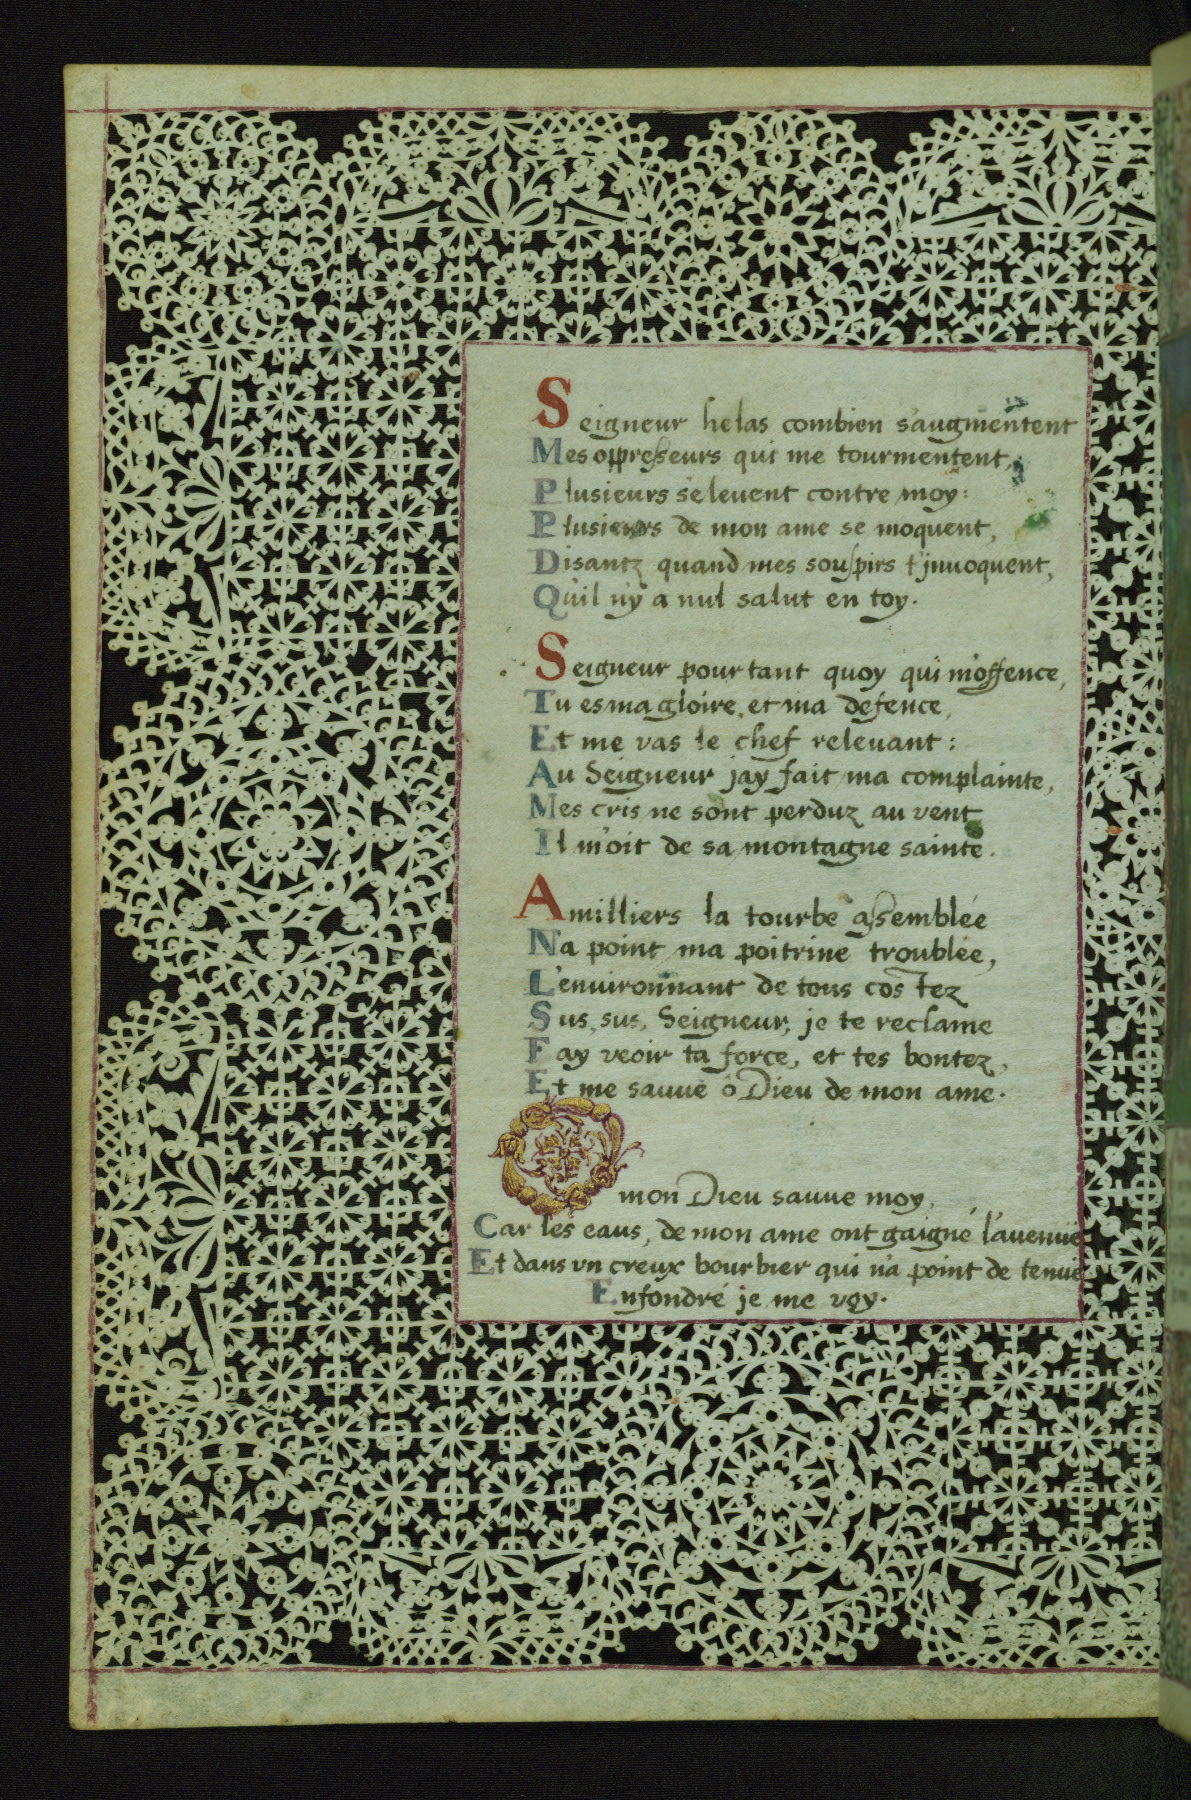 Seigneur helas combien s'augmentent
Mes oppresseurs qui me tourmentent,
Plusieurs se leuent contre moy:
Plusieurs de mon ame se moquent,
Disantz quand mes souspirs t'jnuoquent,
Qu'il n'y a nul salut en toy.
Seigneur pourtant quoy qui m'offence,
Tu es ma gloire, et ma défence,
Et me vas le chef releuant:
Au Seigneur jay fait ma complainte,
Mes cris ne sont perduz au vent
Il m'oit de sa montagne sainte.
A milliers la tourbe assemblée
Na point ma poitrine troublée,
L'enuironnant de tous costez
Sus, sus, Seigneur, je te reclame
Fay veoir ta force, et tes bontez,
Et me sauue ô Dieu de mon ame.
O mon Dieu sauue moy,
Car les eaus, de mon ame ont gaigné l'auenue
Et dans vn creux bourbier qui n'a point de tenue
Enfondré je me voy.